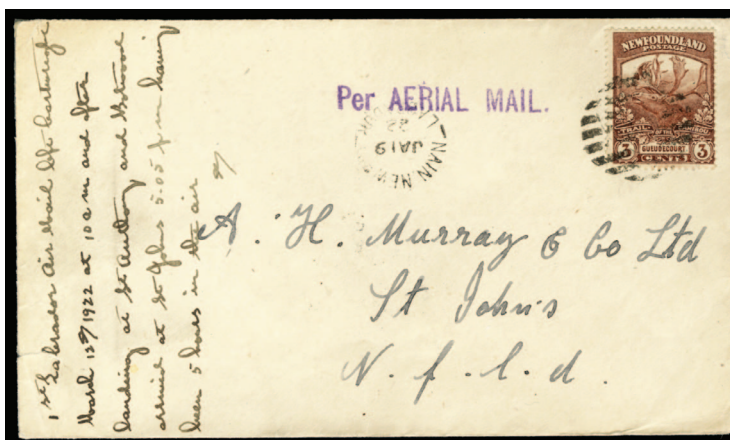 1st Labrador Air Mail left Cartwright
March 12th/1922 at 10 a m and after
landing at St Anthony and Botwood
arrived at St Johns 5.05 p m having
been 5 hours in the air
Per AERIAL MAIL.
NAIN
JA 19
22
NEWFOUNDLAND
POSTAGE
TRAIL OF THE CARIBOU
3 GUEUDECOURT 3
CENTS
A. H. Murray & Co Ltd
St John's
N. f. l. d.